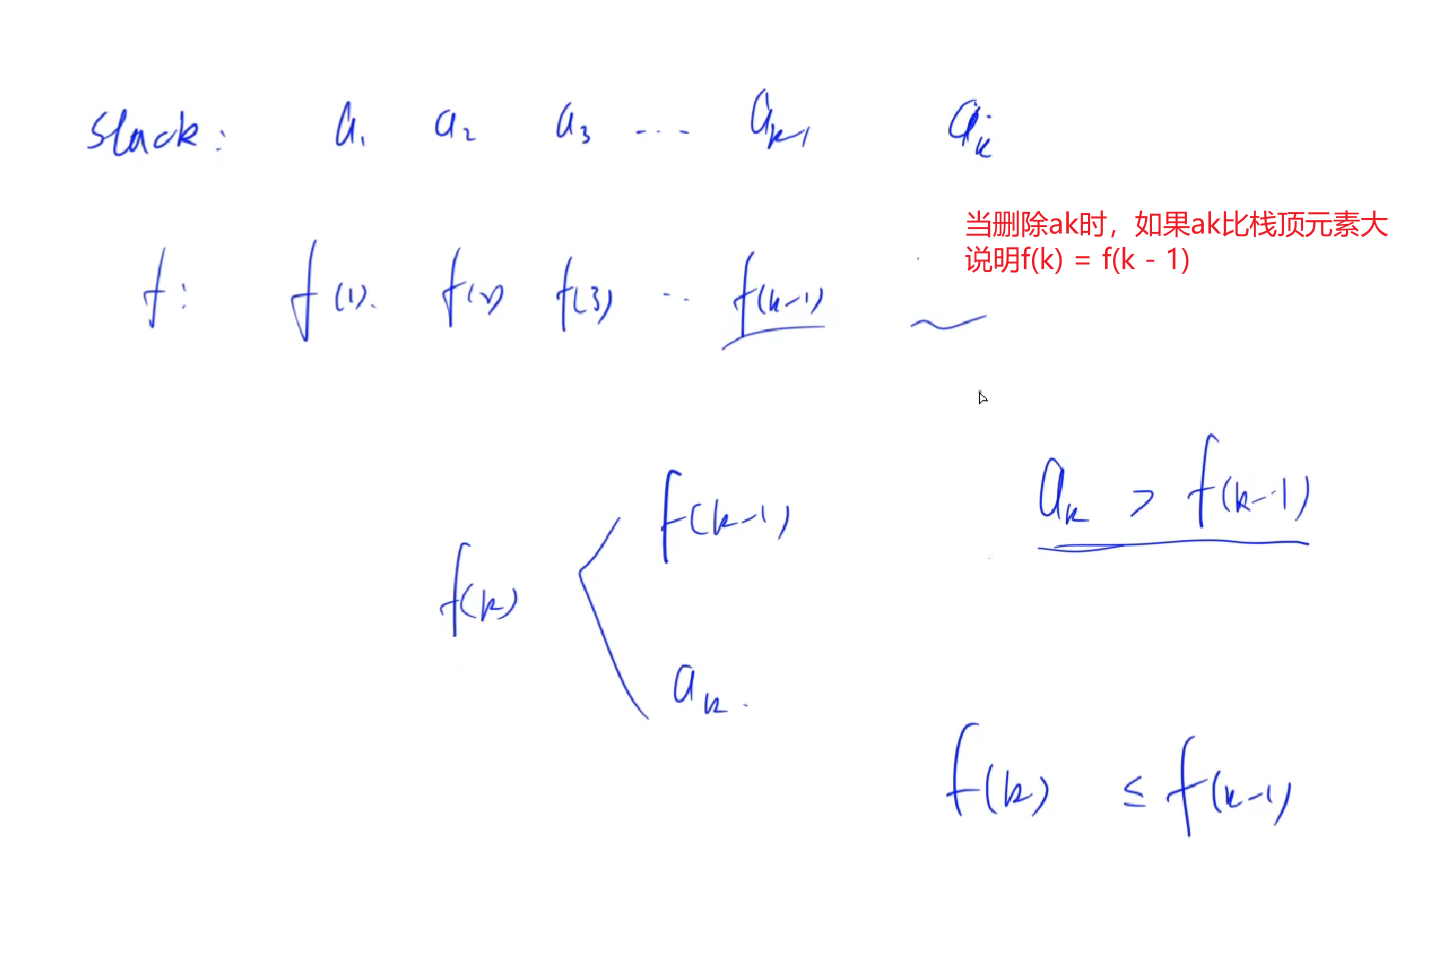 Stack: a₁ a₂ a₃ ... aₖ₋₁ aₖ
当删除ak时，如果ak比栈顶元素大
说明f(k) = f(k - 1)
f: f(1). f(2) f(3) .. f(k-1)
aₖ > f(k-1)
f(k-1)
f(k)
aₖ.
f(k) ≤ f(k-1)